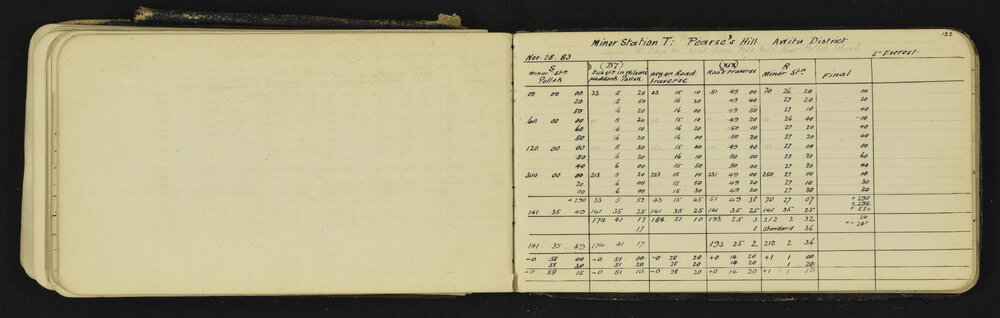 122
Minor Station T: Pearse's Hill Awitu District
5" Everest
Nov. 28. 83
S (B7) (XIX) R
Minor Stn Substn in Wilson's Road Traverse Minor Stn Final
Pollok paddock. Pollok Traverse
00 00 00 33 5 20 43 15 10 51 49 00 70 26 20 00
20 5 50 16 20 49 40 27 20 20
50 6 20 16 00 49 50 27 10 40
60 00 00 5 20 15 10 49 20 26 40 -10
60 6 10 16 20 50 10 27 20 40
50 6 20 16 00 50 20 27 10 40
120 00 00 5 30 15 40 49 40 27 00 00
30 6 20 16 10 50 00 27 20 60
40 6 00 15 50 50 00 27 20 40
300 00 00 213 5 20 223 15 10 231 49 00 250 27 00 10
20 6 00 15 50 49 20 27 10 30
00 6 00 15 30 49 20 27 30 20
+290 33 5 52 43 15 45 51 49 38 70 27 07 +290
141 35 49 141 35 25 141 35 25 141 35 25 141 35 25
174 41 17 184 51 10 193 25 3 212 2 32 24
17 1 Standard 36 = -24"
141 35 49 174 41 17 193 25 2 212 2 36
-0 58 00 -0 51 00 -0 28 20 +0 14 20 +1 1 00
58 30 51 20 28 20 14 20 1 20
-0 58 15 -0 51 10 -0 28 20 +0 14 20 +1 1 10